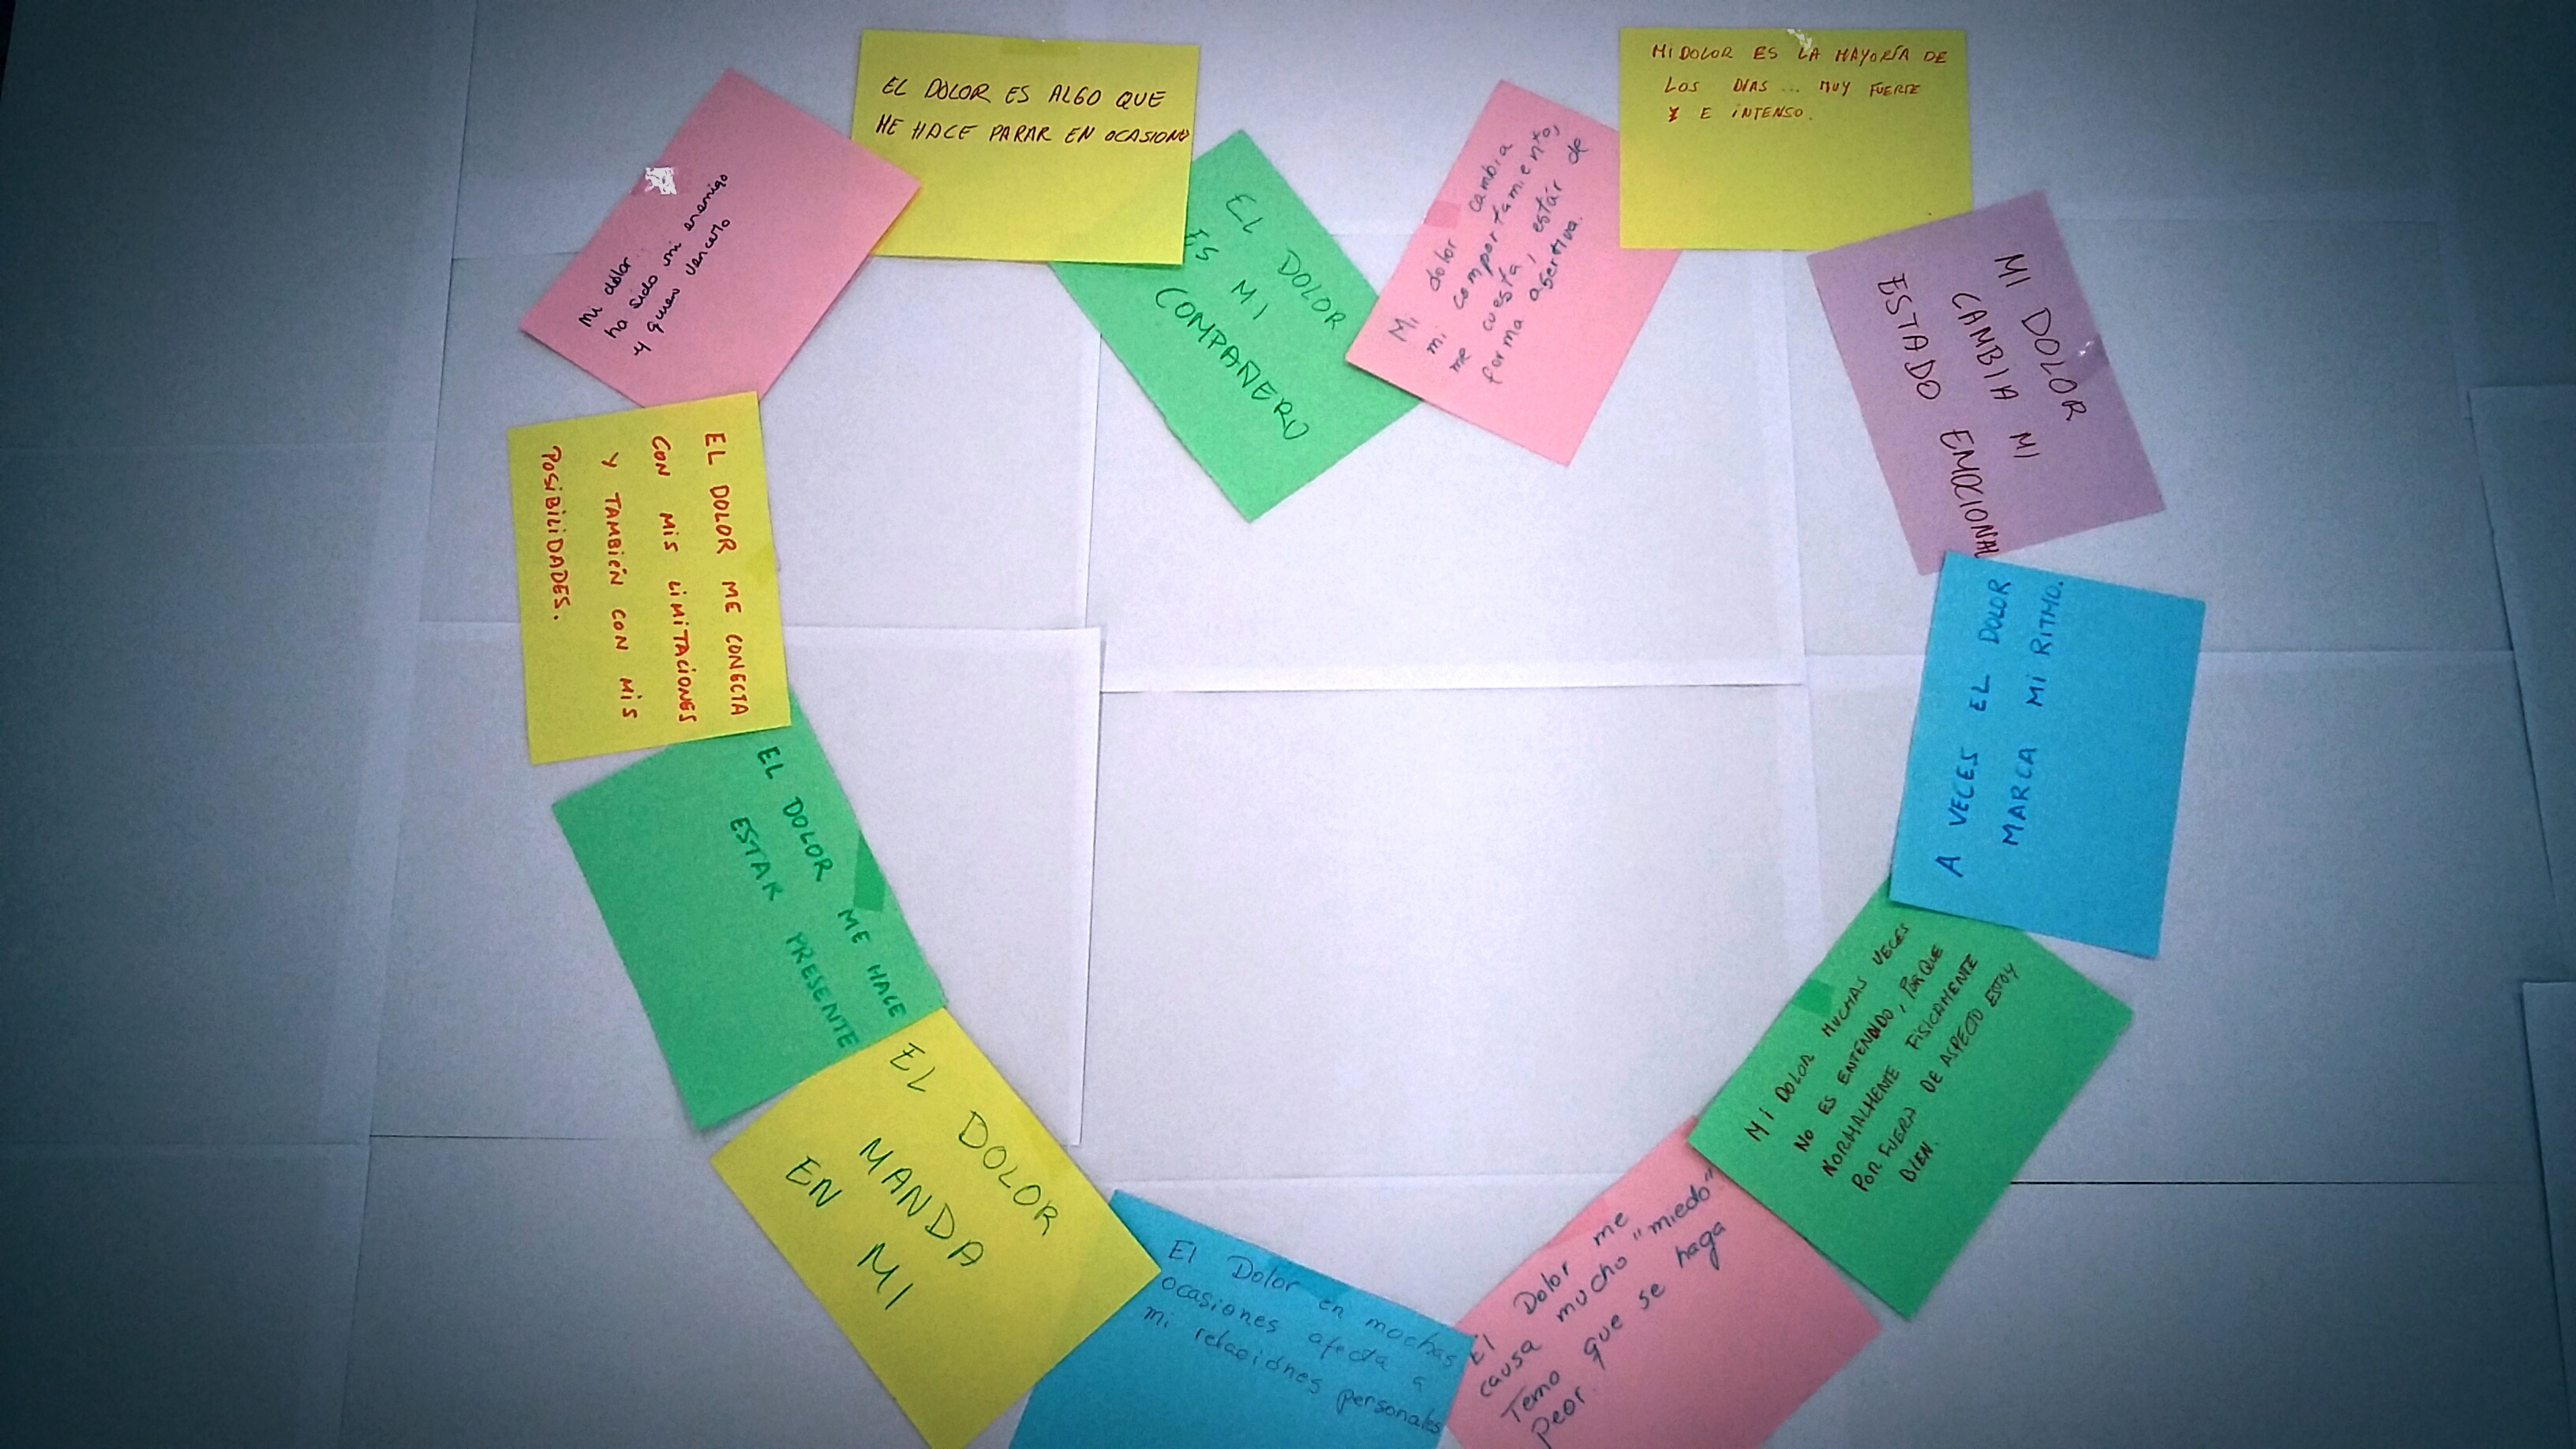 Mi dolor
ha sido mi enemigo
y quiero vencerlo
EL DOLOR ES ALGO QUE
ME HACE PARAR EN OCASIONES
EL DOLOR
ES MI
COMPAÑERO
Mi dolor cambia
mi comportamiento,
me cuesta, estár de
forma asertiva.
Mi DOLOR ES LA MAYORÍA DE
LOS DÍAS... MUY FUERTE
Y E iNTENSO.
MI DOLOR
CAMBIA MI
ESTADO EMOCIONAL
A VECES EL DOLOR
MARCA Mi RiTMO.
Mi DOLOR MUCHAS VECES
NO ES ENTENDIDO, PORQUE
NORMALMENTE FISICAMENTE
POR FUERA DE ASPECTO ESTOY
BIEN.
El Dolor me
causa mucho "miedo"
Temo que se haga
peor.
El Dolor en mochas
ocasiones afecta a
mi relaciónes personales
EL DOLOR
MANDA
EN MI
EL DOLOR ME HACE
ESTAR PRESENTE
EL DOLOR ME CONECTA
CON MiS LiMiTACiONES
Y TAMBiÉN CON MiS
POSiBiLiDADES.